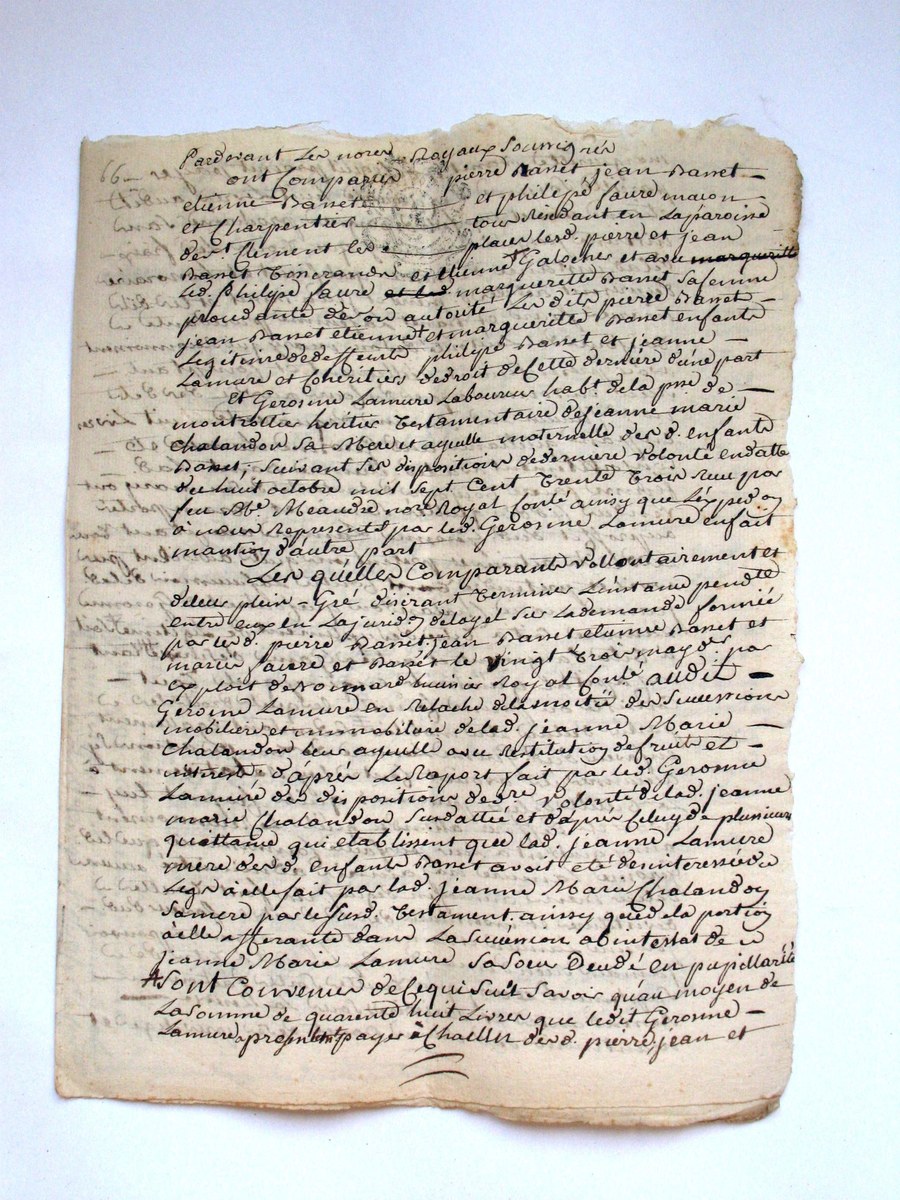 Pardevant Les nores Royaux Soussignés
ont Comparus pierre Basset jean Basset
etienne Basset et philipe faure maçon
et Charpentier tous Residant en La paroisse
de st Clement les places lesd. pierre et jean
Basset etienne Galoches et avec margueritte
Led. philipe faure et lad. margueritte Basset Sa femme
procedante de Son autorité Lesdits pierre Basset
jean Basset etienne et margueritte Basset enfants
Legitimes de deffeunts philipe Basset et jeanne
Lamure et Coheritiers de droit de Cette derniere d'une part
Et Gerosme Lamure Laboureur habt. de la psse de
montrottier heritier Testamentaire de jeanne marie
Chalandon Sa Mere et ayeulle maternelle des d. enfants
Basset, Suivant Ses dispositions de derniere volonté en datte
du huit octobre mil Sept Cent Trente Trois Reçu par
feu Me. Meaudre nore Royal Conlé ainsy que L'expedon
à nous Representée par led. Gerosme Lamure enfait
mantion d'autre part
Les quelles Comparants vollontairement et
de leur plein-Gré desirant Terminer L'instance pendte
entre eux en La juridon de loyet Sur La demande formée
par lesd. pierre Basset, jean Basset etienne Basset et
mariés faure et Basset le vingt Trois may der. par
exploit de huissier Royal Conlé audit
Gerosme Lamure en Relache de la moitié des Successions
mobiliere et immobiliaire de lad. jeanne Marie
Chalandon leur ayeulle avec Restitution de fruits et
interests d'aprés Le Raport fait par led. Gerosme
Lamure des dispositions de dre volonté de lad. jeanne
marie Chalandon Susdattée et d'aprés Celuy de plusieurs
quittance qui etablissent que lad. jeanne Lamure
mere des d. enfants Basset avoit eté desinteressée du
Legs à elle fait par lad. jeanne Marie Chalandon
Sa mere par le Susd. Testament. ainsy que de la portion
à elle afferante dans La Succession abintestat de
jeanne Marie Lamure Sa Soeur Decedé en pupillarité
Sont Convenus de Ce qui Suit Savoir qu'au moyen de
La Somme de quarente huit Livres que ledit Gerosme
Lamure promet payer à Chacun des d. pierre, jean et